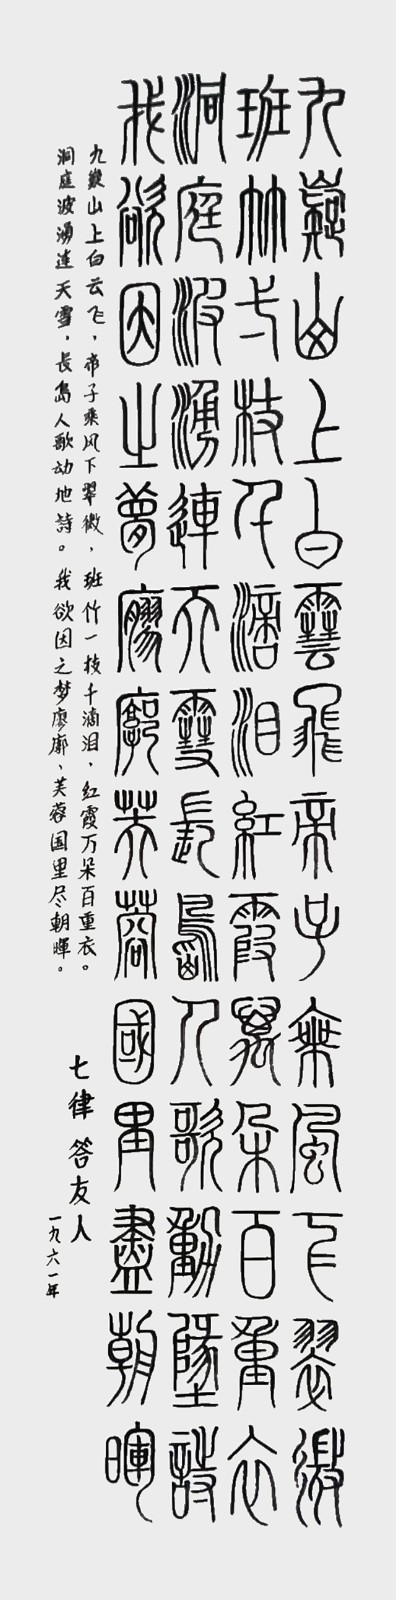 九嶷山上白雲飛帝子乘風下翠微
班竹弌枝千滴泪紅霞萬朵百重衣
洞庭波湧連天雪長島人歌動墬詩
我欲因之夢廖廓芙蓉國里盡朝暉
九嶷山上白云飞，帝子乘风下翠微，班竹一枝千滴泪，红霞万朵百重衣。
洞庭波湧連天雪，長島人歌动地詩。我欲因之梦廖廓，芙蓉国里尽朝暉。
七律 答友人
一九六一年